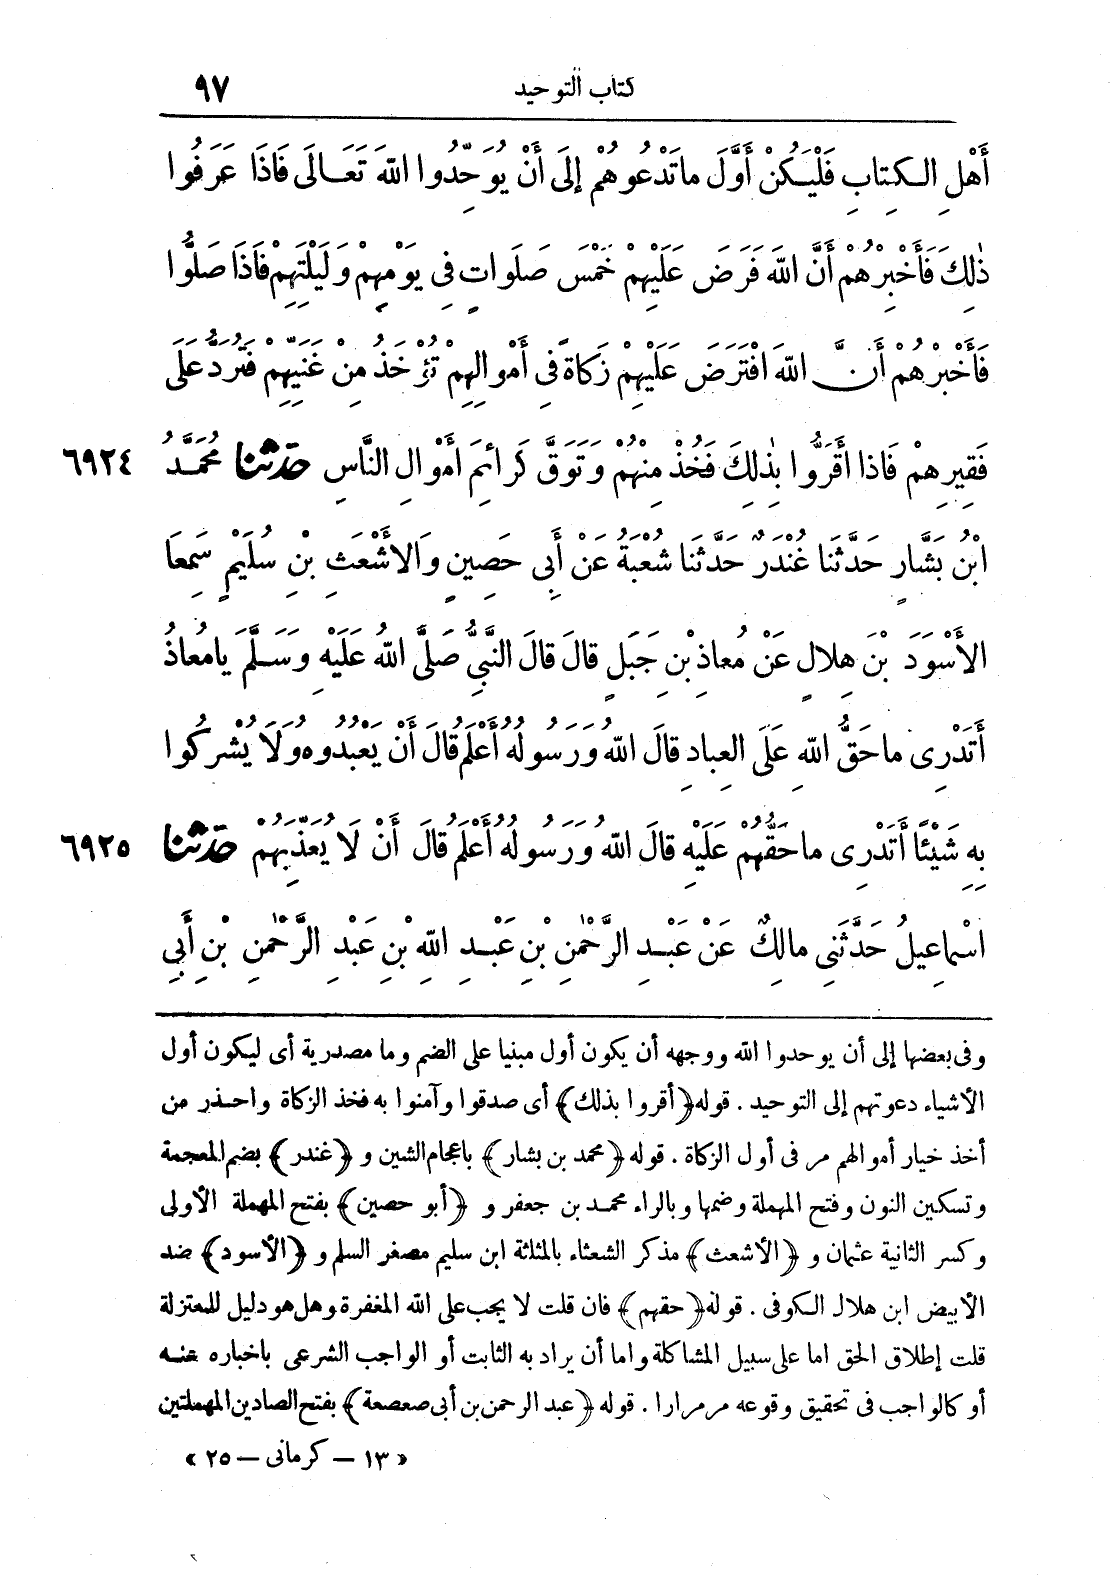 كتاب التوحيد ٩٧
أَهْلِ الكِتابِ فَلْيَكُنْ أَوَّلَ ماتَدْعُوهُمْ إِلَى أَنْ يُوَحِّدُوا اللهَ تَعَالَى فَاذَا عَرَفُوا
ذٰلِكَ فَأَخْبِرْهُمْ أَنَّ اللهَ فَرَضَ عَلَيْهِمْ خَمْسَ صَلَواتٍ فِى يَوْمِهِمْ وَلَيْلَتِهِمْ فَاذَا صَلُّوا
فَأَخْبِرْهُمْ أَنَّ اللهَ افْتَرَضَ عَلَيْهِمْ زَكاةً فِى أَمْوالِهِمْ تُؤْخَذُ مِنْ غَنِيِّهِمْ فَتُرَدُّ عَلَى
فَقِيرِهِمْ فَاذا أَقَرُّوا بِذٰلِكَ فَخُذْ مِنْهُمْ وَتَوَقَّ كَرائِمَ أَمْوالِ النَّاسِ حَدَّثَنا مُحَمَّدُ ٦٩٢٤
ابْنُ بَشَّارٍ حَدَّثَنَا غُنْدَرٌ حَدَّثَنَا شُعْبَةُ عَنْ أَبِى حَصِينٍ وَالاَشْعَثِ بْنِ سُلَيْمٍ سَمِعَا
الأَسْوَدَ بْنَ هِلالٍ عَنْ مُعاذِ بْنِ جَبَلٍ قالَ قالَ النَّبِيُّ صَلَّى اللهُ عَلَيْهِ وَسَلَّمَ يامُعاذُ
أَتَدْرِى ماحَقُّ اللهِ عَلَى العِبادِ قالَ اللهُ وَرَسُولُهُ أَعْلَمُ قالَ أَنْ يَعْبُدُوهُ وَلَا يُشْرِكُوا
بِهِ شَيْئًا أَتَدْرِى ماحَقُّهُمْ عَلَيْهِ قالَ اللهُ وَرَسُولُهُ أَعْلَمُ قالَ أَنْ لَا يُعَذِّبَهُمْ حَدَّثَنا ٦٩٢٥
اسْماعِيلُ حَدَّثَنِى مالِكٌ عَنْ عَبْدِ الرَّحْمٰنِ بْنِ عَبْدِ اللهِ بْنِ عَبْدِ الرَّحْمٰنِ بْنِ أَبِى
وفى بعضها إلى أن يوحدوا الله ووجهه أن يكون أول مبنيا على الضم وما مصدرية أى ليكون أول
الأشياء دعوتهم إلى التوحيد. قوله ﴿أقروا بذلك﴾ أى صدقوا وآمنوا به فخذ الزكاة واحذر من
أخذ خيار أموالهم مر فى أول الزكاة. قوله ﴿محمد بن بشار﴾ باعجام الشين و ﴿غندر﴾ بضم المعجمة
وتسكين النون وفتح المهملة وضمها وبالراء محمد بن جعفر و ﴿أبو حصين﴾ بفتح المهملة الأولى
وكسر الثانية عثمان و ﴿الأشعث﴾ مذكر الشعثاء بالمثلثة ابن سليم مصغر السلم و ﴿الأسود﴾ ضد
الأبيض ابن هلال الكوفى. قوله ﴿حقهم﴾ فان قلت لا يجب على الله المغفرة وهل هو دليل للمعتزلة
قلت إطلاق الحق اما على سبيل المشاكلة واما أن يراد به الثابت أو الواجب الشرعى باخباره عنه
أو كالواجب فى تحقيق وقوعه مر مرارا. قوله ﴿عبد الرحمن بن أبى صعصعة﴾ بفتح الصادين المهملتين
« ١٣ – كرمانى – ٢٥ »